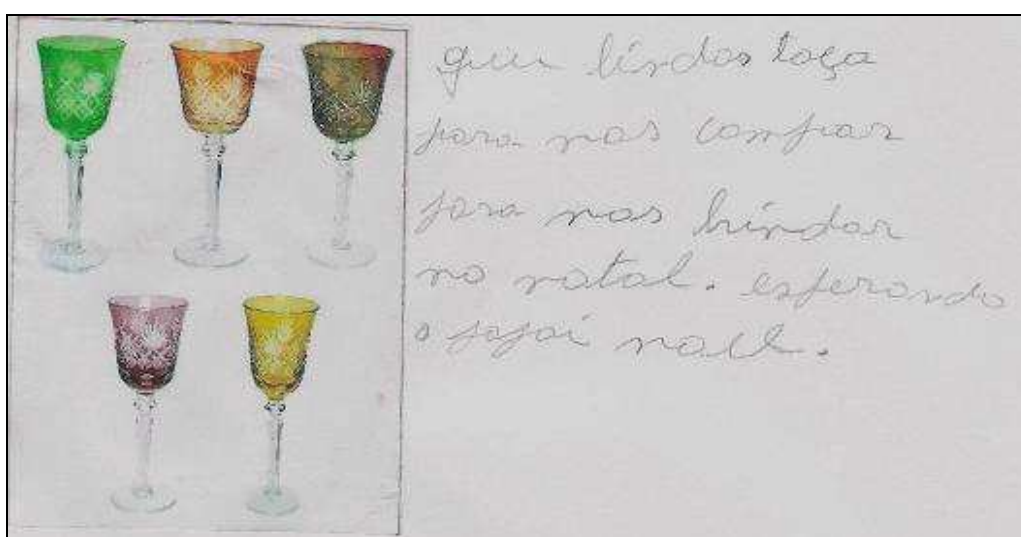 que lindas taça
para nos comprar
para nos brindar
no natal. esperando
o papai noel.